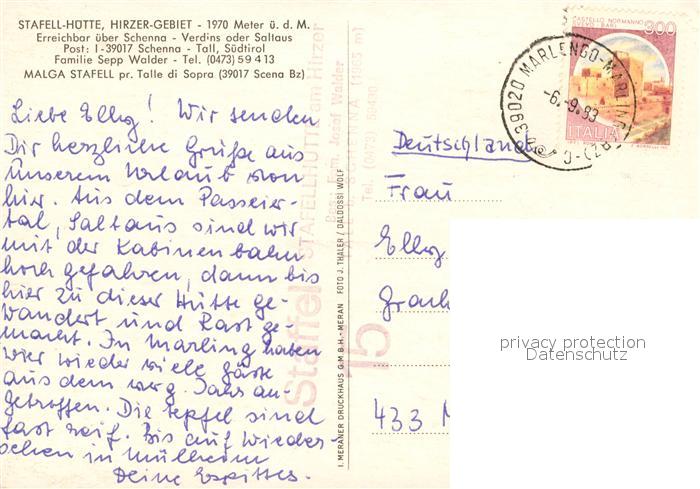 STAFELL-HÜTTE, HIRZER-GEBIET - 1970 Meter ü. d. M.
Erreichbar über Schenna - Verdins oder Saltaus
Post: I-39017 Schenna - Tall, Südtirol
Familie Sepp Walder - Tel. (0473) 59 4 13
MALGA STAFELL pr. Talle di Sopra (39017 Scena Bz)
Liebe Elly! Wir senden
Dir herzliche Grüße aus
unserem Urlaub von
hier. Aus dem Passeier-
tal, Saltaus sind wir
mit der Kabinenbahn
hoch gefahren, dann bis
hier zu dieser Hütte ge-
wandert und Rast ge-
macht. In Marling haben
wir wieder viele Gäste
aus dem verg. Jahr an-
getroffen. Die Äpfel sind
fast reif. Bis auf Wieder-
sehen in Mülheim
Deine
I. MERANER DRUCKHAUS G.M.B.H. - MERAN FOTO J. THALER / DALDOSSI WOLF
STAFELLHÜTTE am Hirzer
Bes.: Fam. Josef Walder
CASTELLO NORMANNO
SVEVO - BARI
300
ITALIA
39020 MARLENGO-MARLING (BZ)-C
-6.-9.83
Deutschland
Frau
Elly
433 M
privacy protection
Datenschutz